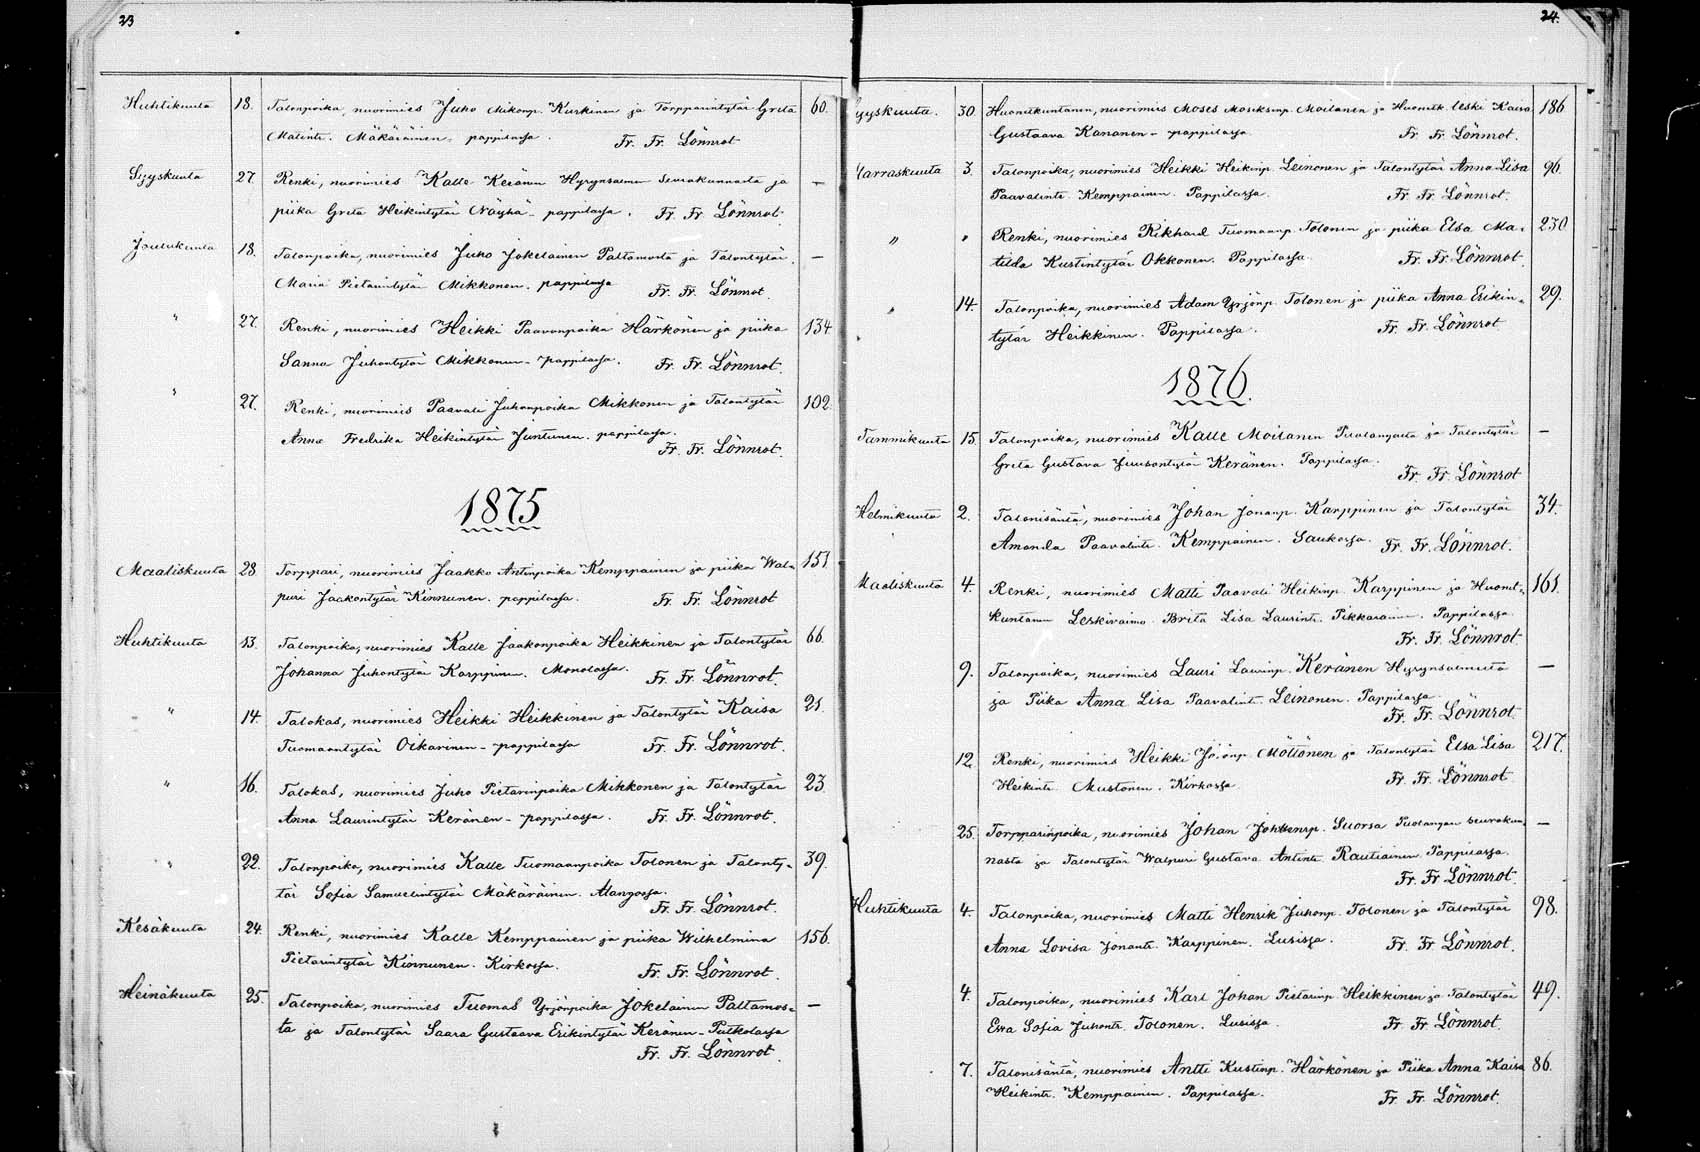 23
Huhtikuuta 18. Talonpoika, nuorimies Juho Mikonp. Kurkinen ja Torpparintytär Greta 60.
Matint. Mäkäräinen, pappilassa. Fr. Fr. Lönnrot
Syyskuuta 27. Renki, nuorimies Kalle Keränen Hyrynsalmen Seurakunnasta ja —
piika Greta Heikintytär Näyhä - pappilassa. Fr. Fr. Lönnrot.
Joulukuuta 18. Talonpoika, nuorimies Juho Jokelainen Paltamosta ja Talontytär —
Maria Pietarintytär Mikkonen. pappilassa Fr. Fr. Lönnrot.
" 27. Renki, nuorimies Heikki Paavonpoika Härkönen ja piika 134
Sanna Juhontytär Mikkonen - pappilassa. Fr. Fr. Lönnrot.
" 27. Renki, nuorimies Paavali Juhonpoika Mikkonen ja Talontytär 102.
Anna Fredrika Heikintytär Juntunen. pappilassa.
Fr. Fr. Lönnrot.
1875
Maaliskuuta 28 Torppari, nuorimies Jaakko Antinpoika Kemppainen ja piika Wal- 151
puri Jaakontytär Kinnunen. pappilassa. Fr. Fr. Lönnrot
Huhtikuuta 13. Talonpoika, nuorimies Kalle Jaakonpoika Heikkinen ja Talontytär 66.
Johanna Juhontytär Karppinen. Monolassa. Fr. Fr. Lönnrot.
" 14. Talokas, nuorimies Heikki Heikkinen ja Talontytär Kaisa 21.
Tuomaantytär Oikarinen - pappilassa Fr. Fr. Lönnrot.
" 16. Talokas, nuorimies Juho Pietarinpoika Mikkonen ja Talontytär 23.
Anna Laurintytär Keränen - pappilassa. Fr. Fr. Lönnrot.
" 22. Talonpoika, nuorimies Kalle Tuomaanpoika Tolonen ja Talonty- 39.
tär Sofia Samuelintytär Mäkäräinen. Alangossa.
Fr. Fr. Lönnrot.
Kesäkuuta 24. Renki, nuorimies Kalle Kemppainen ja piika Wilhelmina 156.
Pietarintytär Kinnunen. Kirkossa. Fr. Fr. Lönnrot.
Heinäkuuta 25. Talonpoika, nuorimies Tuomas Yrjönpoika Jokelainen Paltamos- —
ta ja Talontytär Saara Gustaava Erikintytär Keränen - Putkolassa
Fr. Fr. Lönnrot.
24.
yyskuuta. 30. Huonekuntanen, nuorimies Moses Mosiksenp. Moilanen ja Huonek. leski Kaisa 186
Gustaava Kananen - pappilassa Fr. Fr. Lönnrot.
arraskuuta 3. Talonpoika, nuorimies Heikki Heikinp. Leinonen ja Talontytär Anna Lisa 96.
Paavalintr. Kemppainen. Pappilassa. Fr. Fr. Lönnrot.
" " Renki, nuorimies Rikhard Tuomaanp. Tolonen ja piika Elsa Ma- 230
tilda Kustintytär Okkonen. Pappilassa. Fr. Fr. Lönnrot.
" 14. Talonpoika, nuorimies Adam Yrjönp. Tolonen ja piika Anna Erikin- 29.
tytär Heikkinen. Pappilassa. Fr. Fr. Lönnrot.
1876.
Tammikuuta 15. Talonpoika, nuorimies Kalle Moilanen Puolangasta ja Talontytär —
Greta Gustava Juusontytär Keränen. Pappilassa.
Fr. Fr. Lönnrot
Helmikuuta 2. Talonisäntä, nuorimies Johan Jonanp. Karppinen ja Talontytär 34.
Amanda Paavalintr. Kemppainen. Saukossa. Fr. Fr. Lönnrot.
Maaliskuuta 4. Renki, nuorimies Matti Paavali Heikinp. Karppinen ja Huone- 161.
kuntanen Leskivaimo Brita Lisa Laurintr. Pikkarainen. Pappilassa
Fr. Fr. Lönnrot
9. Talonpoika, nuorimies Lauri Laurinp. Keränen Hyrynsalmelta —
ja Piika Anna Lisa Paavalintr. Leinonen. Pappilassa.
Fr. Fr. Lönnrot.
12. Renki, nuorimies Heikki Möttönen ja Talontytär Elsa Lisa 217.
Heikintr. Mustonen. Kirkossa. Fr. Fr. Lönnrot
25. Torpparinpoika, nuorimies Johan Suorsa Puolangan seurakun- —
nasta ja Talontytär Walpuri Gustava Antintr. Rautiainen. Pappilassa.
Fr. Fr. Lönnrot.
Huhtikuuta 4. Talonpoika, nuorimies Matti Henrik Juhonp. Tolonen ja Talontytär 98.
Anna Lovisa Jonantr. Karppinen. Lusissa. Fr. Fr. Lönnrot.
4. Talonpoika, nuorimies Karl Johan Pietarinp. Heikkinen ja Talontytär 49.
Eva Sofia Juhontr. Tolonen. Lusissa. Fr. Fr. Lönnrot.
7. Talonisäntä, nuorimies Antti Kustinp. Härkönen ja Piika Anna Kaisa 86.
Heikintr. Kemppainen. Pappilassa. Fr. Fr. Lönnrot.